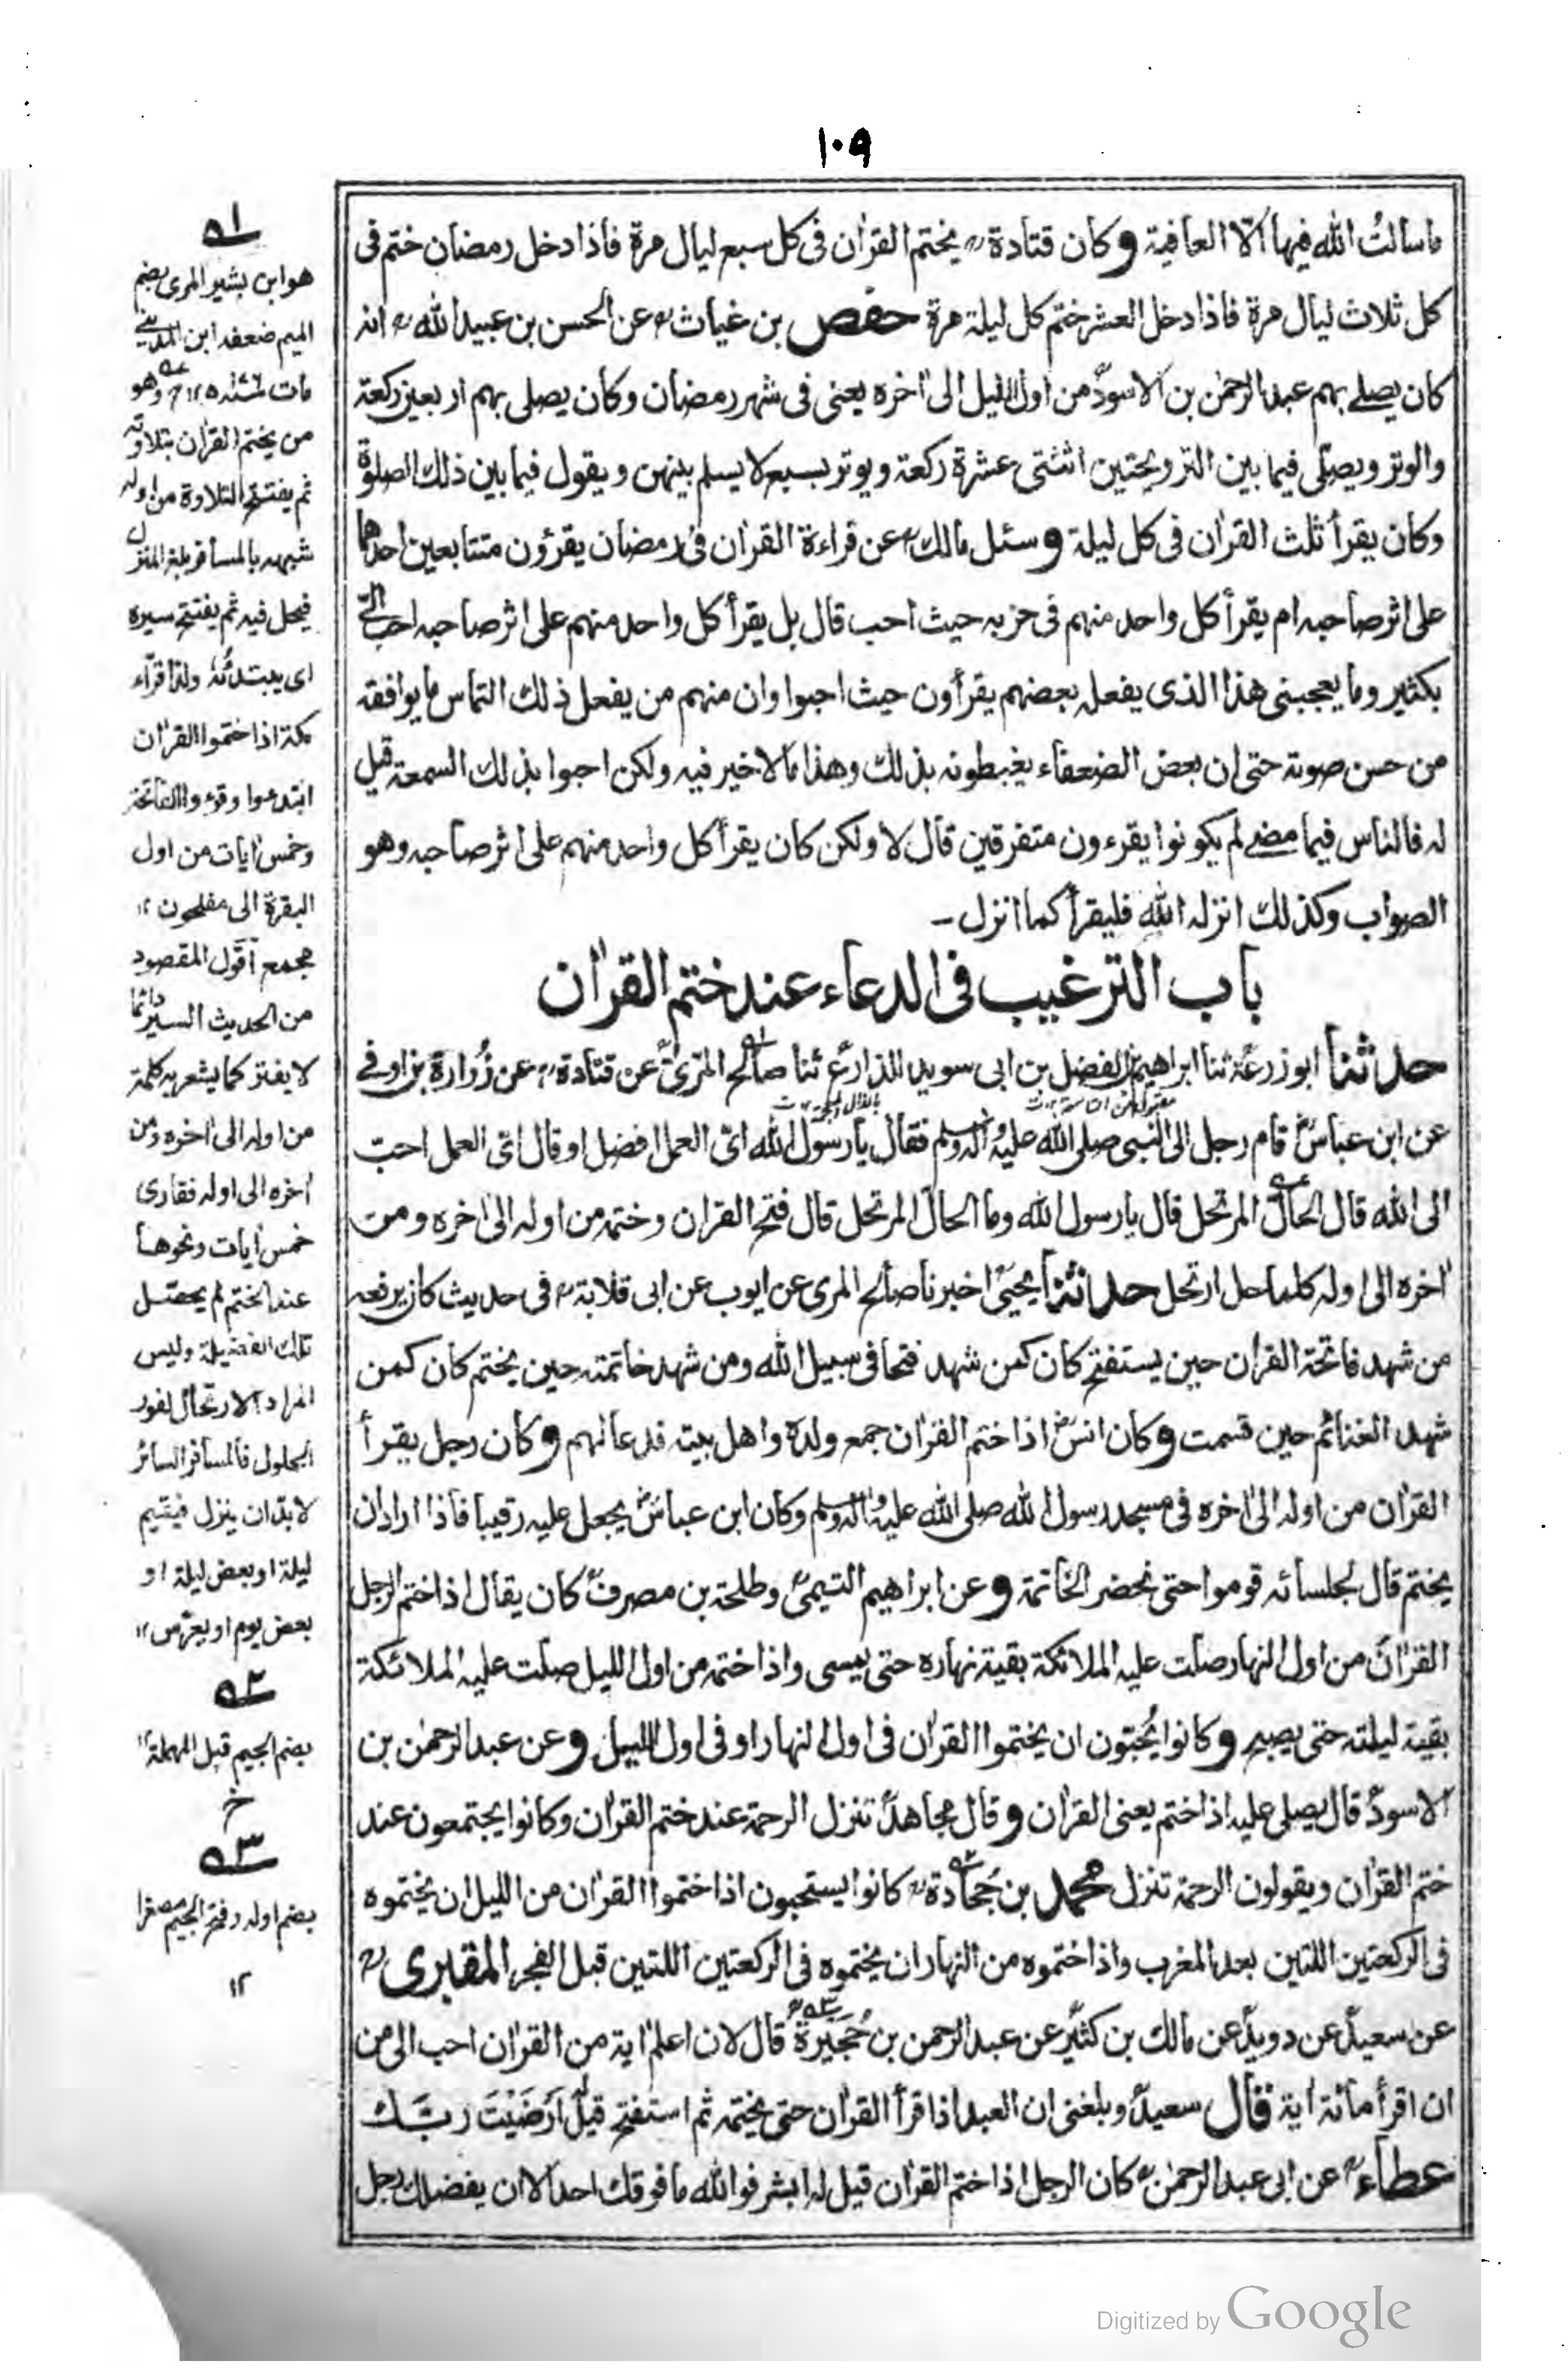 ١٠٩
ما سألتُ الله فيها الّا العافية وكان قتادة يختم القراٰن فى كل سبع ليال مرة فاذا دخل رمضان ختم فى
كل ثلاث ليال مرة فاذا دخل العشر ختم كل ليلة مرة حفص بن غياث عن الحسن بن عبيد الله انه
كان يصلے بهم عبد الرحمٰن بن الاسود من اول الليل الى اٰخره يعنى فى شهر رمضان وكان يصلى بهم اربعين ركعة
والوتر ويصلّى فيما بين الترويحتين اثنتى عشرة ركعة ويوتر بسبع لا يسلم بينهن ويقول فيما بين ذلك الصلوة
وكان يقرأ ثلث القراٰن فى كل ليلة وسئل مالك عن قراءة القراٰن فى رمضان يقرؤن متتابعين احدهما
على اثر صاحبه ام يقرأ كل واحد منهم فى حزبه حيث احب قال بل يقرأ كل واحد منهم على اثر صاحبه احب الىّ
بكثير وما يعجبنى هذا الذى يفعله بعضهم يقرأون حيث احبوا وان منهم من يفعل ذلك التماس ما يوافقه
من حسن صوته حتى ان بعض الضعفاء يغبطونه بذلك وهذا مما لا خير فيه ولكن احبوا بذلك السمعة قيل
له فالناس فيما مضے لم يكونوا يقرءون متفرقين قال لا ولكن كان يقرأ كل واحد منهم على اثر صاحبه وهو
الصواب وكذلك انزله الله فليقرأ كما انزل ــ
باب الترغيب فى الدعاء عند ختم القراٰن
حدثنا ابو زرعة ثنا ابراهيم بن الفضل بن ابى سويد الذارع ثنا صالح المرى عن قتادة عن زُرارة بن اوفے
عن ابن عباس قام رجل الى النبى صلى الله عليه واٰله وسلم فقال يا رسول الله اىّ العمل افضل او قال اىّ العمل احبّ
الى الله قال الحالّ المرتحل قال يا رسول الله وما الحالّ المرتحل قال فتح القراٰن وختمه من اوله الى اٰخره ومن
اٰخره الى اوله كلما حل ارتحل حدثنا يحيى اخبرنا صالح المرى عن ايوب عن ابى قلابة فى حديث كان يرفعه
من شهد فاتحة القراٰن حين يستفتح كان كمن شهد فتحا فى سبيل الله ومن شهد خاتمته حين يختم كان كمن
شهد الغنائم حين قسمت وكان انس اذا ختم القراٰن جمع ولدہ واهل بيته فدعا لهم وكان رجل يقرأ
القراٰن من اوله الى اٰخره فى مسجد رسول الله صلى الله عليه واٰله وسلم وكان ابن عباس يجعل عليه رقيبا فاذا اراد ان
يختم قال لجلسائه قوموا حتى نحضر الخاتمة وعن ابراهيم التيمى وطلحة بن مصرف كان يقال اذا ختم الرجل
القراٰن من اول النهار صلت عليه الملائكة بقية نهاره حتى يمسى واذا ختمه من اول الليل صلت عليه الملائكة
بقية ليلته حتى يصبح وكانوا يُحبّون ان يختموا القراٰن فى اول النهار او فى اول الليل وعن عبد الرحمٰن بن
الاسود قال يصلى عليه اذا ختم يعنى القراٰن وقال مجاهد تنزل الرحمة عند ختم القراٰن وكانوا يجتمعون عند
ختم القراٰن ويقولون الرحمة تنزل محمد بن جُحادة كانوا يستحبون اذا ختموا القراٰن من الليل ان يختموه
فى الركعتين اللتين بعد المغرب واذا ختموه من النهار ان يختموه فى الركعتين اللتين قبل الفجر المقبرى
عن سعيد عن دويد عن مالك بن كثير عن عبد الرحمن بن حُجَيرة قال لان اعلم اٰية من القراٰن احب الى من
ان اقرأ مائة اٰية قال سعيد وبلغنى ان العبد اذا قرأ القراٰن حتى يختمه ثم استفتح قيل أرَضَيْتَ ربّك
عطاء عن ابى عبد الرحمٰن كان الرجل اذا ختم القراٰن قيل له ابشر فوالله ما فوقك احد الا ان يفضلك رجل
٥١
هو ابن بشير المرى بضم
الميم ضعفه ابن المدينے
مات وهو
من يختم القراٰن بتلاوته
ثم يفتتح التلاوة من اوله
شبهه بالمسافر يبلغ المنزل
فيحل فيه ثم يفتتح سيره
اى يبتدئه ولذا قرّاء
مكة اذا ختموا القراٰن
ابتدءوا وقرءوا الفاتحة
وخمس اٰيات من اول
البقرة الى مفلحون ١٢
مجمع اقول المقصود
من الحديث السير دائما
لا يفتر كما يشعر به كلمة
من اوله الى اٰخره ومن
اٰخره الى اوله فقارى
خمس اٰيات ونحوها
عند الختم لم يحصل
تلك الفضيلة وليس
المراد الارتحال لفور
الحلول فالمسافر السائر
لا بد ان ينزل فيقيم
ليلة او بعض ليلة او
بعض يوم او يعرّس ١٢
٥٢
بضم الجيم قبل المهملة ١٢
خ
٥٣
بضم اوله وفتح الجيم مصغرا
١٢
Digitized by Google